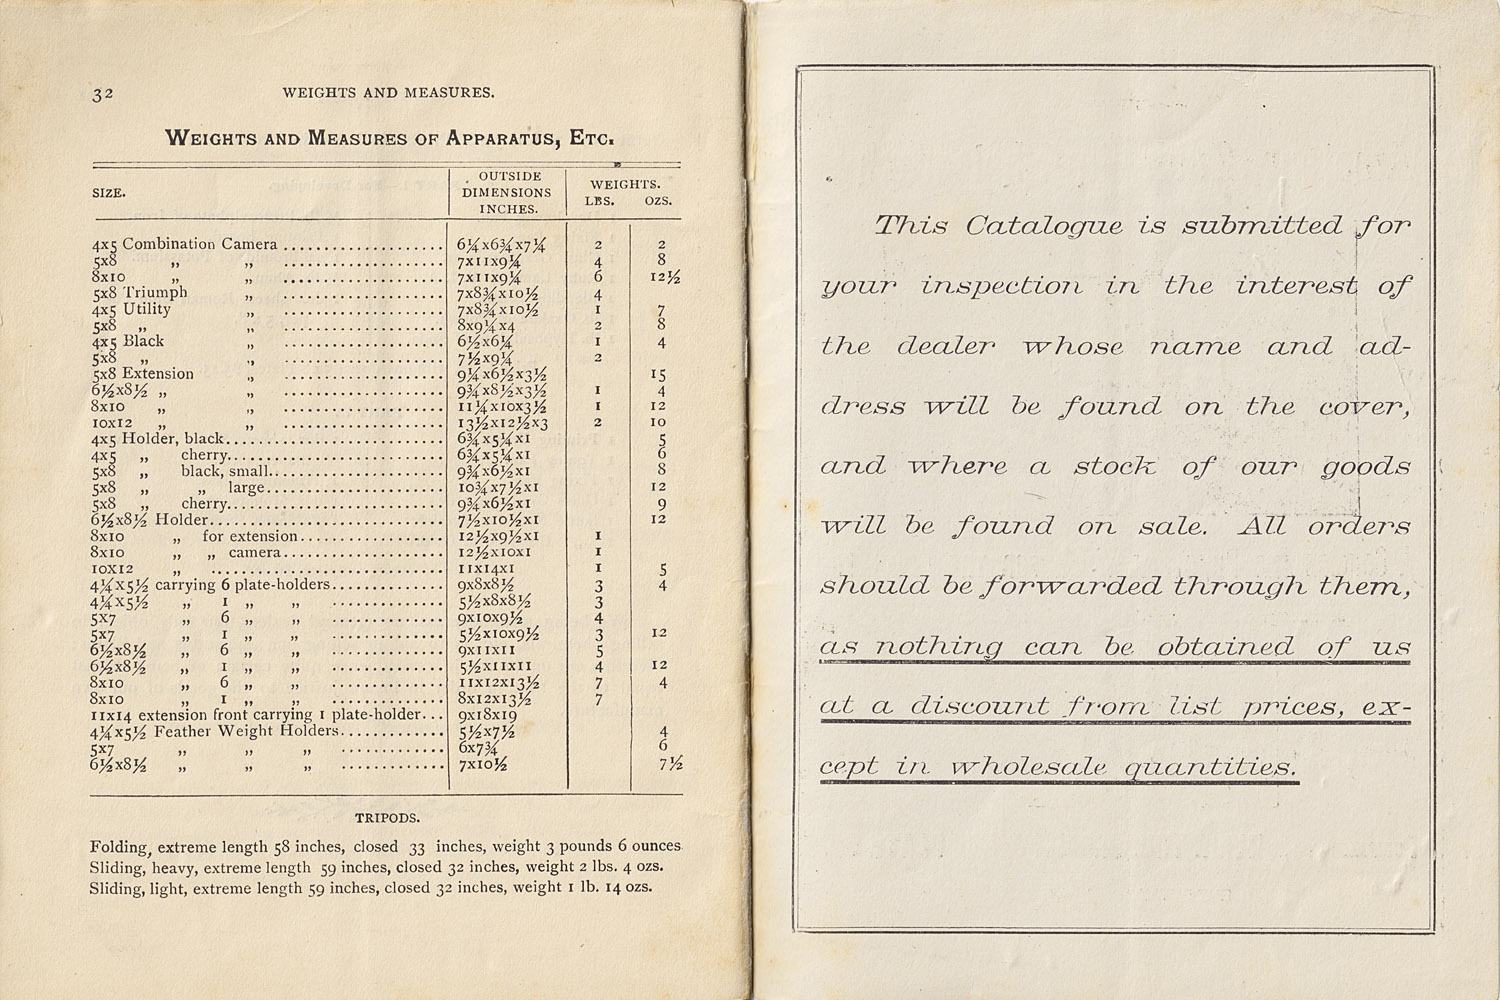 32 WEIGHTS AND MEASURES.
WEIGHTS AND MEASURES OF APPARATUS, ETC.
SIZE. OUTSIDE DIMENSIONS INCHES. WEIGHTS. LBS. OZS.
4x5 Combination Camera ..................... 6¼x6¾x7¼ 2 2
5x8 „ „ ..................... 7x11x9¼ 4 8
8x10 „ „ ..................... 7x11x9¼ 6 12½
5x8 Triumph „ ..................... 7x8¾x10½ 4
4x5 Utility „ ..................... 7x8¾x10½ 1 7
5x8 „ „ ..................... 8x9¼x4 2 8
4x5 Black „ ..................... 6½x6¼ 1 4
5x8 „ „ ..................... 7½x9¼ 2
5x8 Extension „ ..................... 9¼x6½x3½ 15
6½x8½ „ „ ..................... 9¾x8½x3½ 1 4
8x10 „ „ ..................... 11¼x10x3½ 1 12
10x12 „ „ ..................... 13½x12½x3 2 10
4x5 Holder, black............................ 6¾x5¼x1 5
4x5 „ cherry............................ 6¾x5¼x1 6
5x8 „ black, small...................... 9¾x6½x1 8
5x8 „ „ large....................... 10¾x7½x1 12
5x8 „ cherry............................ 9¾x6½x1 9
6½x8½ Holder.............................. 7½x10½x1 12
8x10 „ for extension.................. 12½x9½x1 1
8x10 „ „ camera..................... 12½x10x1 1
10x12 „ .............................. 11x14x1 1 5
4¼x5½ carrying 6 plate-holders.............. 9x8x8½ 3 4
4¼x5½ „ 1 „ „ .............. 5½x8x8½ 3
5x7 „ 6 „ „ .............. 9x10x9½ 4
5x7 „ 1 „ „ .............. 5½x10x9½ 3 12
6½x8½ „ 6 „ „ .............. 9x11x11 5
6½x8½ „ 1 „ „ .............. 5½x11x11 4 12
8x10 „ 6 „ „ .............. 11x12x13½ 7 4
8x10 „ 1 „ „ .............. 8x12x13½ 7
11x14 extension front carrying 1 plate-holder... 9x18x19
4¼x5½ Feather Weight Holders............. 5½x7½ 4
5x7 „ „ „ ............. 6x7¾ 6
6½x8½ „ „ „ ............. 7x10½ 7½
TRIPODS.
Folding, extreme length 58 inches, closed 33 inches, weight 3 pounds 6 ounces.
Sliding, heavy, extreme length 59 inches, closed 32 inches, weight 2 lbs. 4 ozs.
Sliding, light, extreme length 59 inches, closed 32 inches, weight 1 lb. 14 ozs.
This Catalogue is submitted for
your inspection in the interest of
the dealer whose name and ad-
dress will be found on the cover,
and where a stock of our goods
will be found on sale. All orders
should be forwarded through them,
as nothing can be obtained of us
at a discount from list prices, ex-
cept in wholesale quantities.